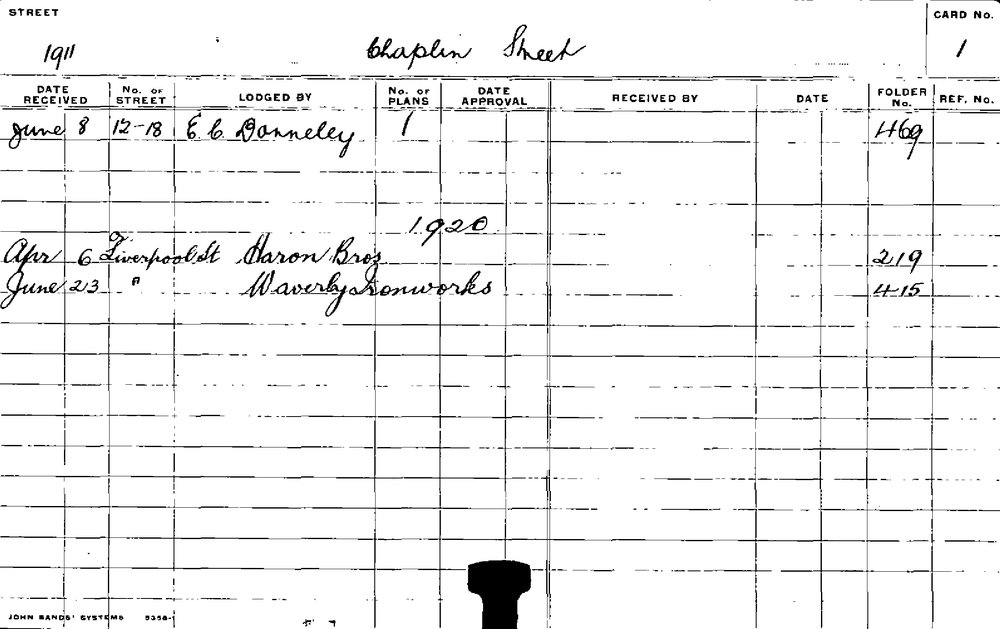 STREET
CARD No.
1911 Chaplin Street 1
DATE RECEIVED No. OF STREET LODGED BY No. OF PLANS DATE APPROVAL RECEIVED BY DATE FOLDER No. REF. No.
June 8 12-18 E. C. Donneley 1 469
1920
Apr 6 Liverpool St Haron Bros 219
June 23 " Waverly Ironworks 415
JOHN SANDS' SYSTEMS 9358-